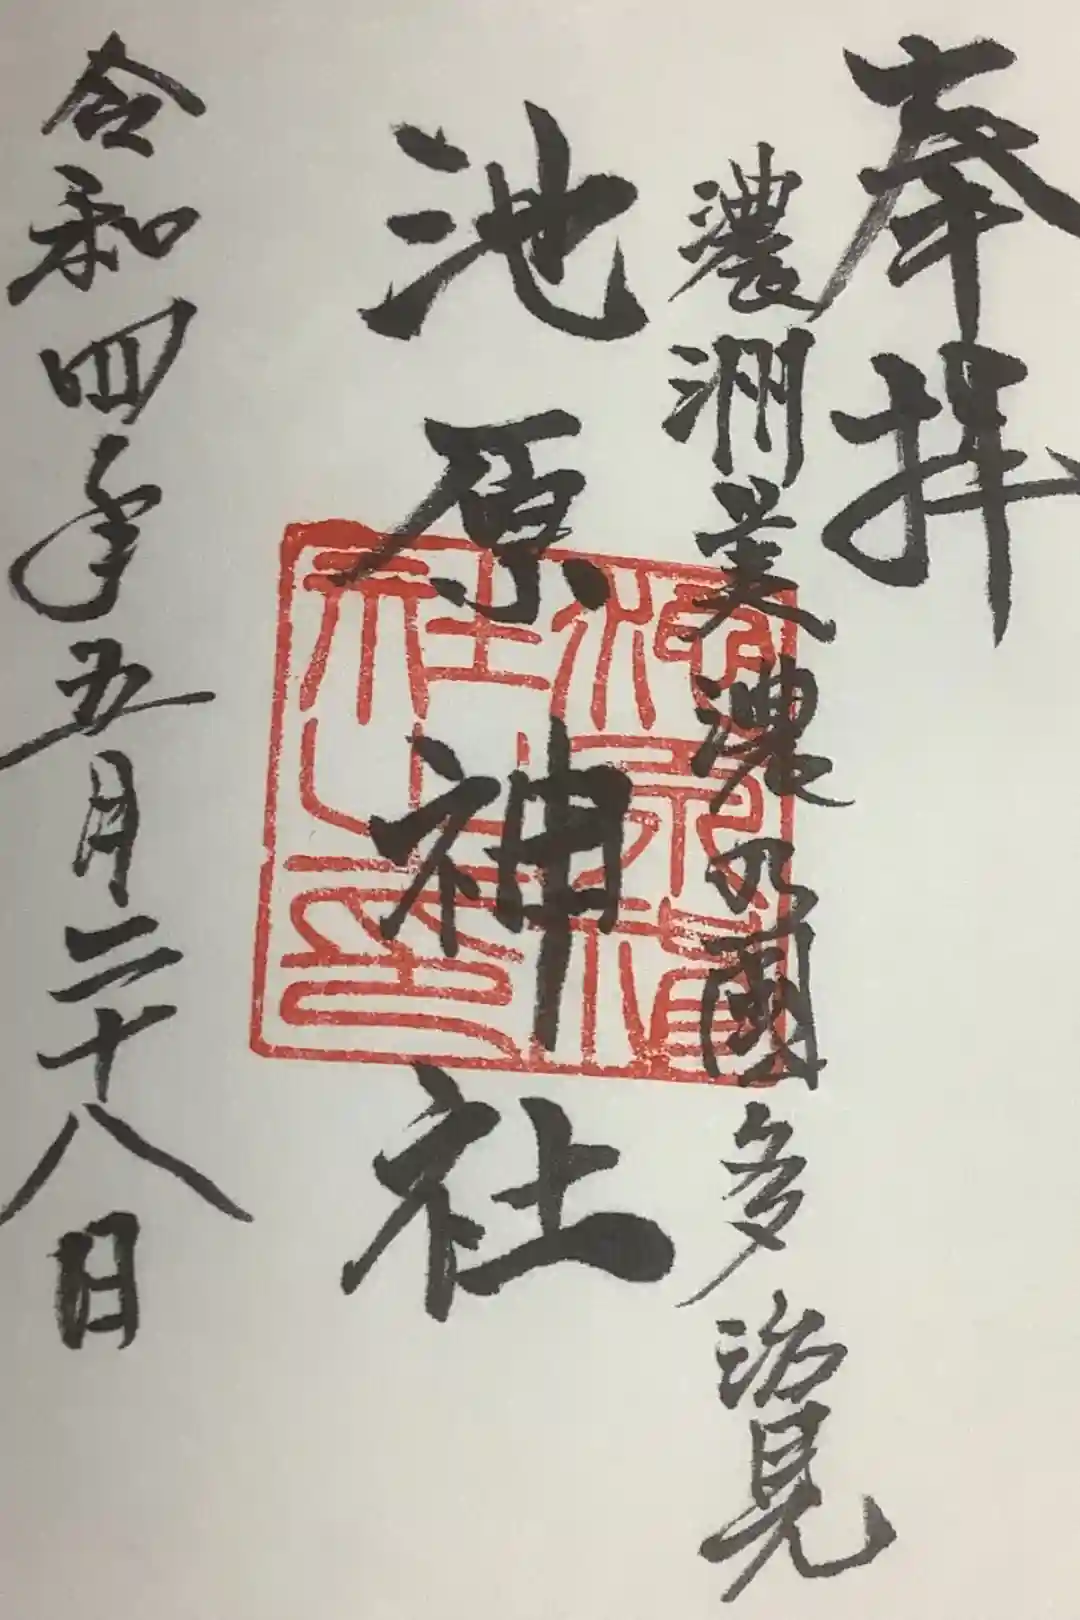 奉拝
濃洲美濃乃國多治見
池原神社
令和四年五月二十八日